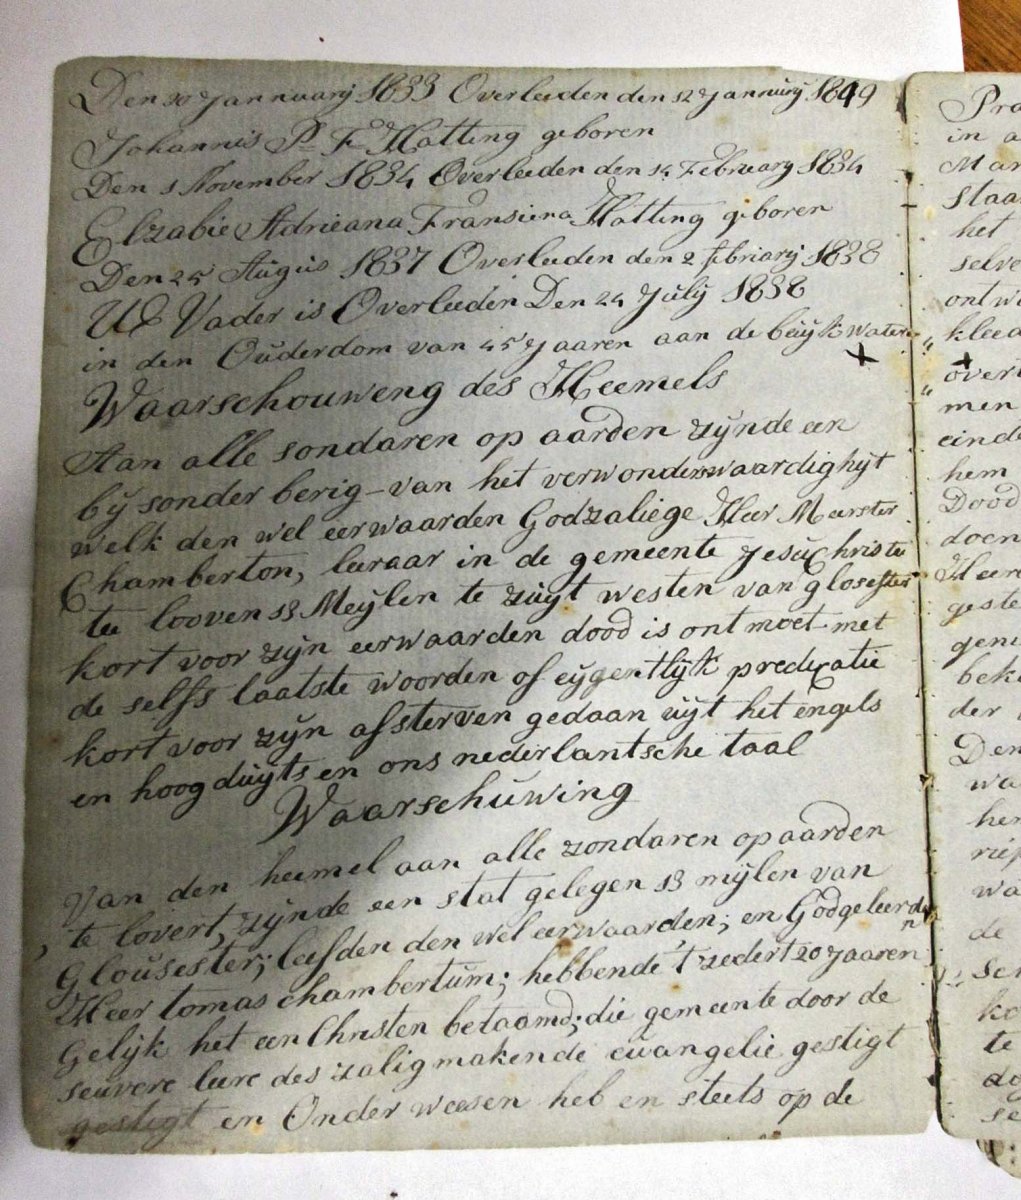 Den 20 Jannuarij 1833 Overleeden den 12 Jannuarij 1849
Johannis P. F. Hatting geboren
Den 1 November 1834 Overleeden den 14 February 1834
Elzabie Adrieana Fransiena Hatting geboren
Den 25 Augus 1837 Overleeden den 2 febriarij 1838
UE Vader is Overleeden Den 24 July 1838
in den Ouderdom van 45 Jaaren aan de buijk water
Waarschouweng des Heemels
Aan alle sondaren op aarden zynde een
by sonder berig van het verwonderswaardighijt
welk den wel eerwaarden Godzaliege Heer Meerster
Chamberton, leeraar in de gemeente Jesu Christe
tee loovens 13 Meylen te zuyt westen van glosester
kort voor zyn eerwaarden dood is ontmoet met
de selfs laatste woorden of eygentlyk predicatie
kort voor zyn afsterven gedaan uyt het engels
en hoog duyts en ons nederlantsche taal
Waarschuwing
Van den heemel aan alle zondaren op aarden
, te lovert, zynde een stat gelegen 13 mylen van
Glousester; leefden den wel eerwaarden; en Godgeleerden
Heer tomas chambertum; hebbende 't zedert 20 Jaaren
Gelyk het een Christen betaamd; die gemeente door de
seuvere leere des zaligmakende ewangelie gestigt
gestigt en Onder weesen heb en steets op de
Pra
in a
Mar
Staa
het
selve
ontwa
kleed
overt
men
einde
hem
Dood
doen
Heere
geste
geni
beke
der
Den
wa
her
riep
wa
de
sen
ko
te
do
se